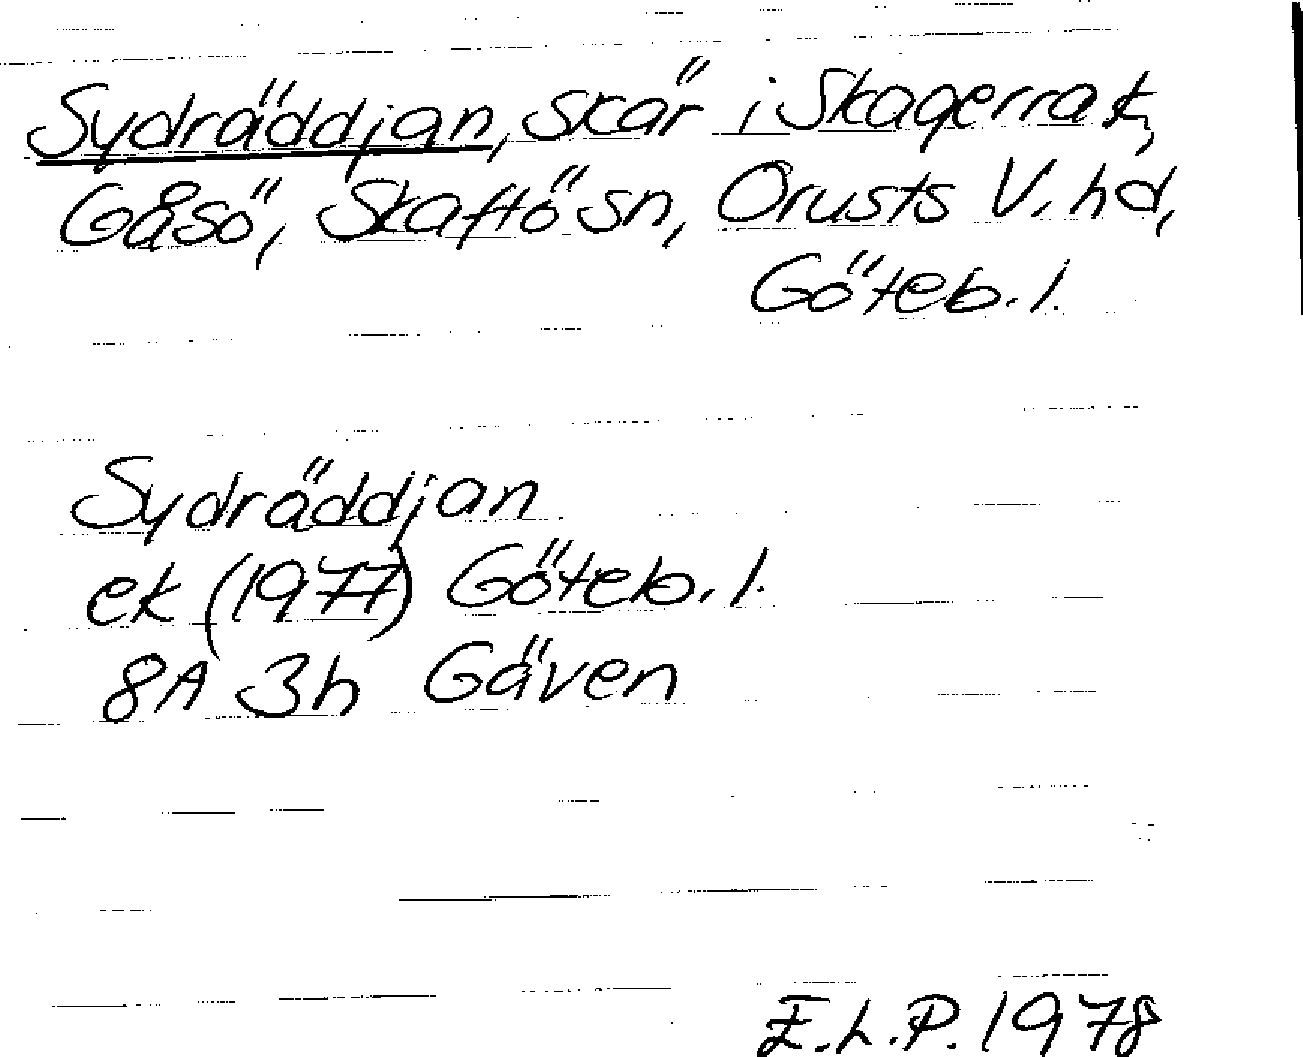 Sydräddjan, skär i Skagerrak,
Gåsö, Skaftö sn, Orusts V. hd,
Göteb. l.
Sydräddjan
ek (1977) Göteb. l.
8A 3h Gäven
E.L.P. 1978